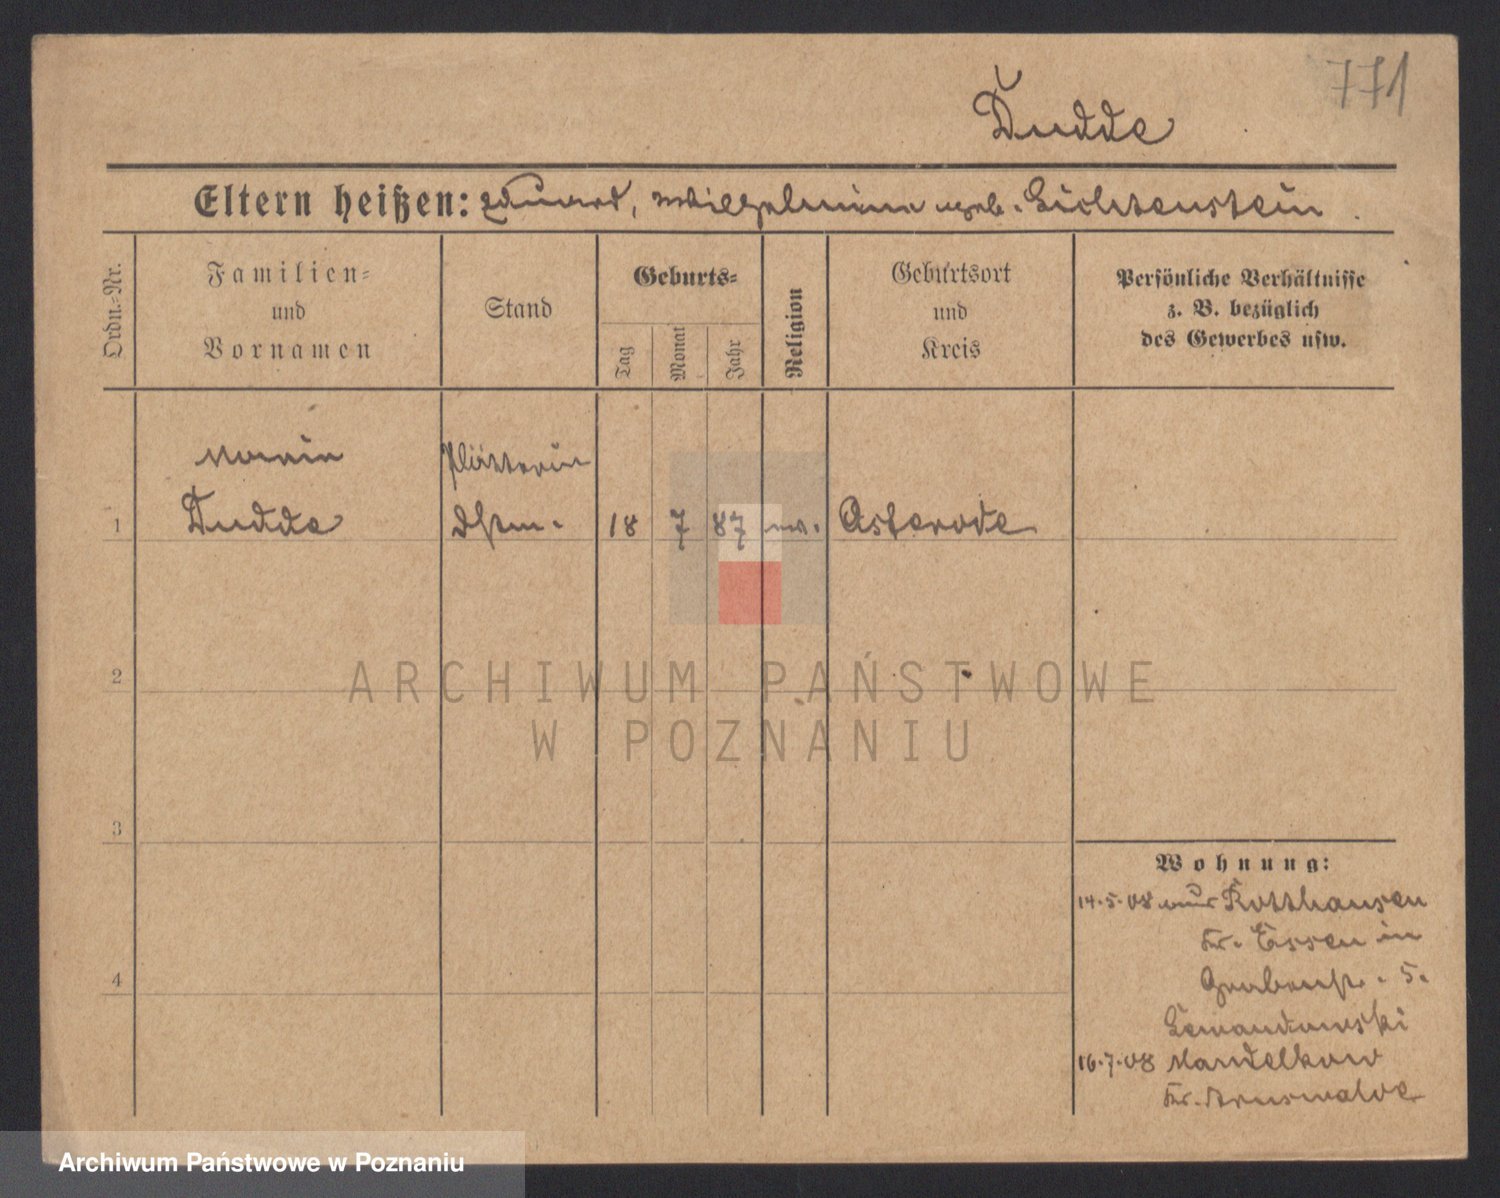 771
Dudde
Eltern heißen: Eduard, Wilhelmine geb. Lichtenstein.
Ordn.-Nr.
Familien-
und
Vornamen
Stand
Geburts-
Tag
Monat
Jahr
Religion
Geburtsort
und
Kreis
Persönliche Verhältnisse
z. B. bezüglich
des Gewerbes usw.
Maria Plätterin
1 Dudde 18 7 87 Osterode
2
ARCHIWUM PAŃSTWOWE
W POZNANIU
3
Wohnung:
14.5.08 aus Rotthausen
Kr. Essen in
4
Grabenstr. 5.
Lewandowski
16.7.08 Mandelkow
Kr. Arnswalde
Archiwum Państwowe w Poznaniu